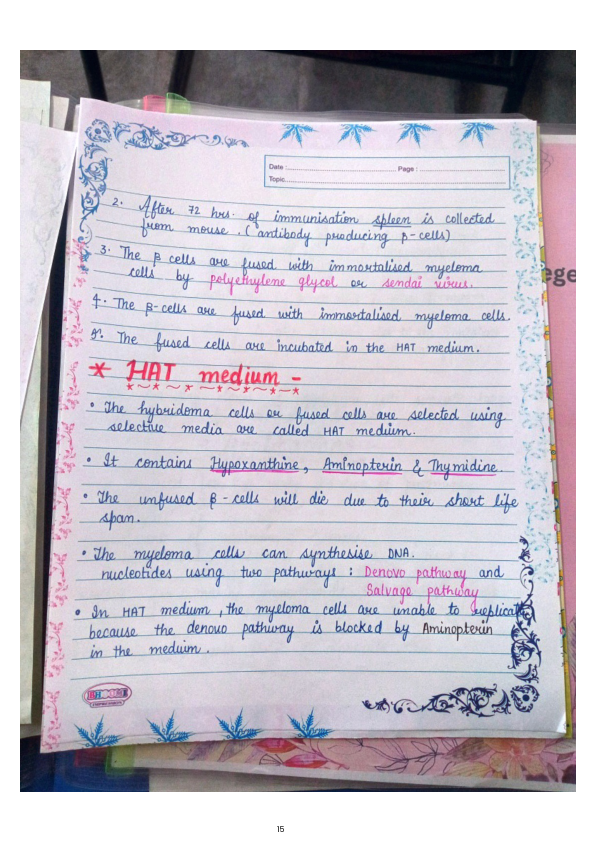 Date : Page :
Topic
2. After 72 hrs. of immunisation spleen is collected
from mouse. (antibody producing β-cells)
3. The β cells are fused with immortalised myeloma
cells by polyethylene glycol or sendai virus.
4. The β-cells are fused with immortalised myeloma cells.
5. The fused cells are incubated in the HAT medium.
* HAT medium -
• The hybridoma cells or fused cells are selected using
selective media are called HAT medium.
• It contains Hypoxanthine, Aminopterin & Thymidine.
• The unfused β-cells will die due to their short life
span.
• The myeloma cells can synthesise DNA.
nucleotides using two pathways : Denovo pathway and
Salvage pathway
• In HAT medium, the myeloma cells are unable to replicat
because the denovo pathway is blocked by Aminopterin
in the medium.
ege
15